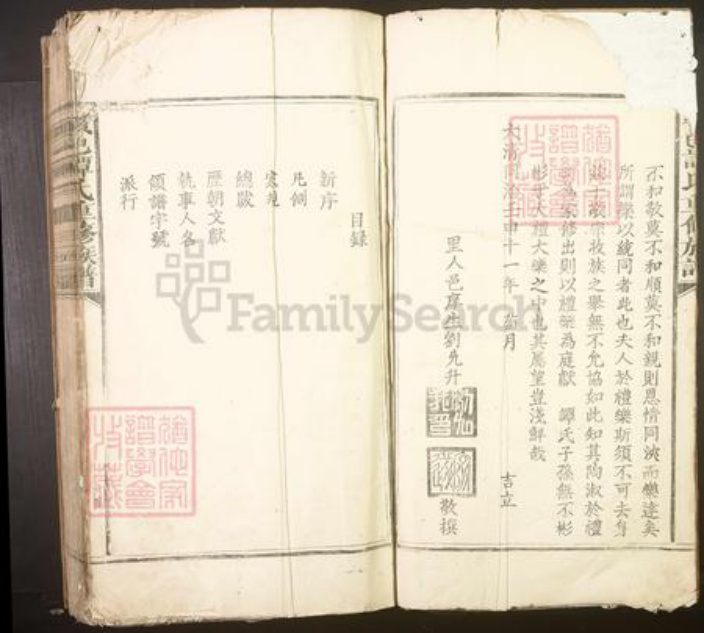 不和敬莫不和順莫不和親則恩情同浹而樂達矣
所謂樂以統同者此也夫人於禮樂斯須不可去身
敬宗收族之舉無不允協如此知其陶淑於禮
修出則以禮樂為庭獻 譚氏子孫無不彬
彬乎大禮大樂之中也其屬望豈淺鮮哉
大清同治壬申十一年 月 吉立
里人邑庠生劉先升 敬撰
目錄
新序
凡例
家規
總跋
歷朝文獻
執事人名
領譜字號
派行
邑譚氏重修族譜
FamilySearch